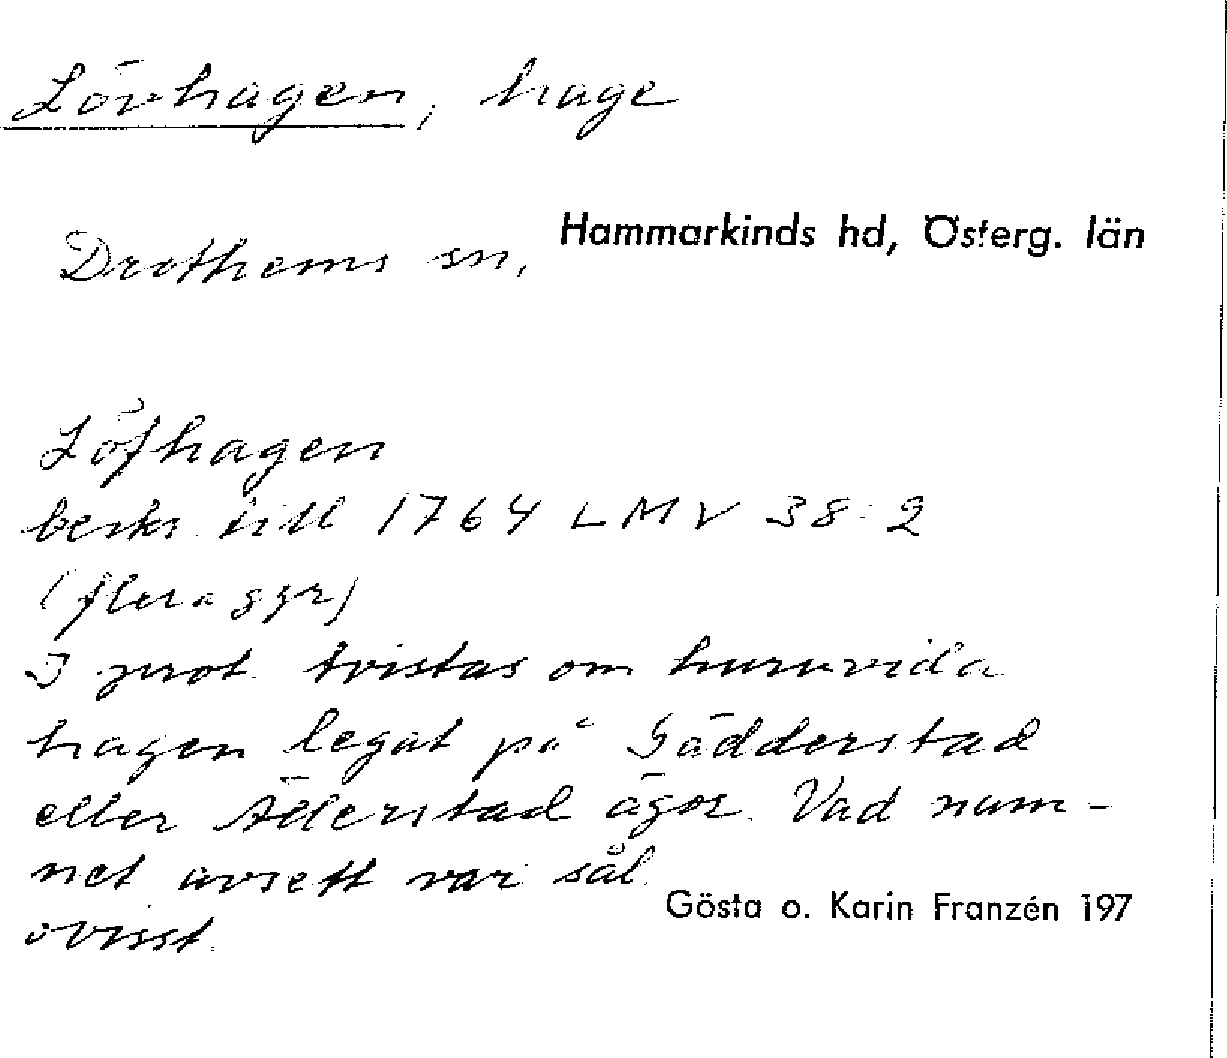 Lövhagen, hage
Drothems sn, Hammarkinds hd, Österg. län
Löfhagen
beskr till 1764 LMV 38:2
(flera ggr)
I prot. tvistas om huruvida
hagen legat på Gädderstad
eller Ällerstad ägor. Vad nam-
net avsett var sål.
ovisst.
Gösta o. Karin Franzén 197